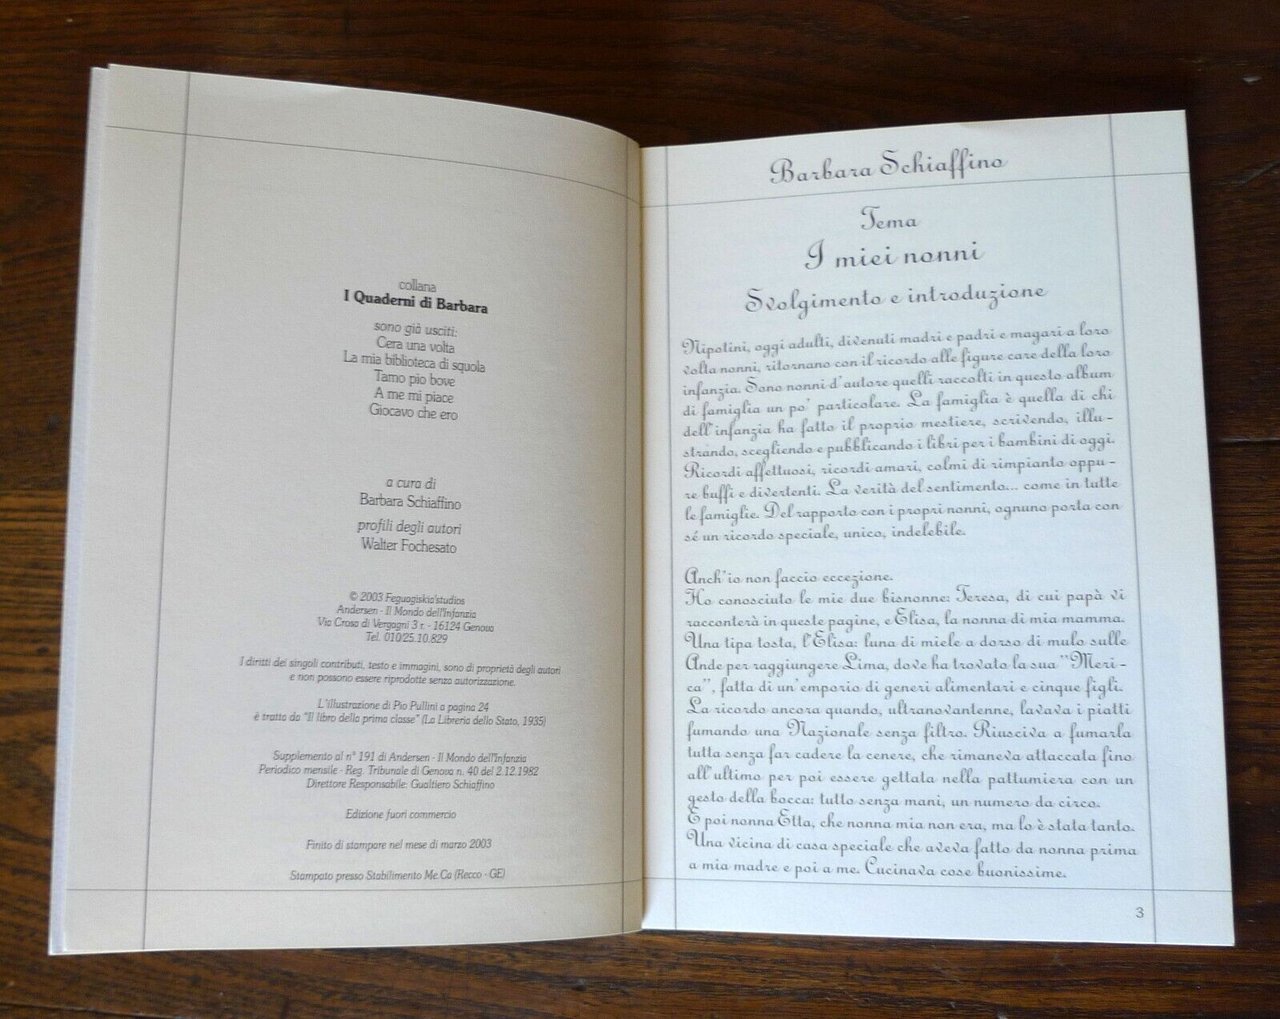 collana
I Quaderni di Barbara
sono già usciti:
Cera una volta
La mia biblioteca di squola
Tamo pio bove
A me mi piace
Giocavo che ero
a cura di
Barbara Schiaffino
profili degli autori
Walter Fochesato
© 2003 Feguagiskia'studios
Andersen - Il Mondo dell'Infanzia
Via Crosa di Vergagni 3 r. - 16124 Genova
Tel. 010/25.10.829
I diritti dei singoli contributi, testo e immagini, sono di proprietà degli autori
e non possono essere riprodotte senza autorizzazione.
L'illustrazione di Pio Pullini a pagina 24
è tratta da "Il libro della prima classe" (La Libreria dello Stato, 1935)
Supplemento al n° 191 di Andersen - Il Mondo dell'Infanzia
Periodico mensile - Reg. Tribunale di Genova n. 40 del 2.12.1982
Direttore Responsabile: Gualtiero Schiaffino
Edizione fuori commercio
Finito di stampare nel mese di marzo 2003
Stampato presso Stabilimento Me.Ca (Recco - GE)
Barbara Schiaffino
Tema
I miei nonni
Svolgimento e introduzione
Nipotini, oggi adulti, divenuti madri e padri e magari a loro
volta nonni, ritornano con il ricordo alle figure care della loro
infanzia. Sono nonni d'autore quelli raccolti in questo album
di famiglia un po' particolare. La famiglia è quella di chi
dell'infanzia ha fatto il proprio mestiere, scrivendo, illu-
strando, scegliendo e pubblicando i libri per i bambini di oggi.
Ricordi affettuosi, ricordi amari, colmi di rimpianto oppu-
re buffi e divertenti. La verità del sentimento... come in tutte
le famiglie. Del rapporto con i propri nonni, ognuno porta con
sé un ricordo speciale, unico, indelebile.
Anch'io non faccio eccezione.
Ho conosciuto le mie due bisnonne: Teresa, di cui papà vi
racconterà in queste pagine, e Elisa, la nonna di mia mamma.
Una tipa tosta, l'Elisa: luna di miele a dorso di mulo sulle
Ande per raggiungere Lima, dove ha trovato la sua "Meri-
ca", fatta di un'emporio di generi alimentari e cinque figli.
La ricordo ancora quando, ultranovantenne, lavava i piatti
fumando una Nazionale senza filtro. Riusciva a fumarla
tutta senza far cadere la cenere, che rimaneva attaccata fino
all'ultimo per poi essere gettata nella pattumiera con un
gesto della bocca: tutto senza mani, un numero da circo.
E poi nonna Etta, che nonna mia non era, ma lo è stata tanto.
Una vicina di casa speciale che aveva fatto da nonna prima
a mia madre e poi a me. Cucinava cose buonissime.
3